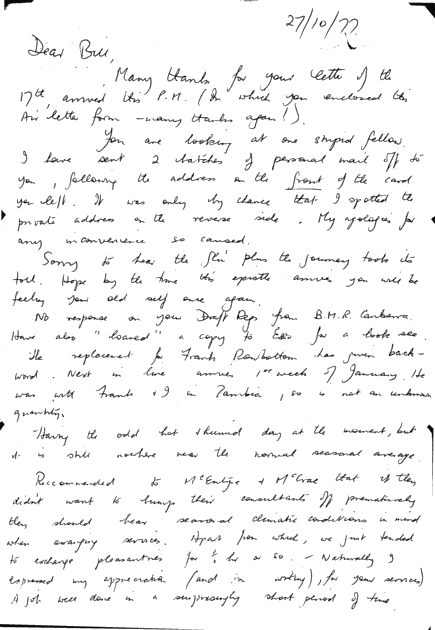 27/10/77.
Dear Bill,
Many thanks for your letter of the
17th, arrived this P.M. (In which you enclosed this
Air letter form - many thanks again!).
You are looking at one stupid fellow.
I have sent 2 batches of personal mail off to
you, following the address on the front of the card
you left. It was only by chance that I spotted the
private address on the reverse side. My apologies for
any inconvenience so caused.
Sorry to hear the flu' plus the journey took its
toll. Hope by the time this epistle arrives you will be
feeling your old self once again.
No response on your Draft Regs from B.M.R. Canberra.
Have also "loaned" a copy to for a look see.
The replacement for Frank Rowbottom has given back-
word. Next in line arrives 1st week of January. He
was with Frank & I in Zambia, so is not an unknown
quantity.
Having the odd hot & humid day at the moment, but
it is still nowhere near the normal seasonal average.
Recommended to McEntyre & McCrae that if they
didn't want to bump their consultants off prematurely
they should bear seasonal climatic conditions in mind
when arranging services. Apart from which, we just tended
to exchange pleasantries for ½ hr or so. - Naturally I
expressed my appreciation (and in writing), for your services)
A job well done in a surprisingly short period of time.